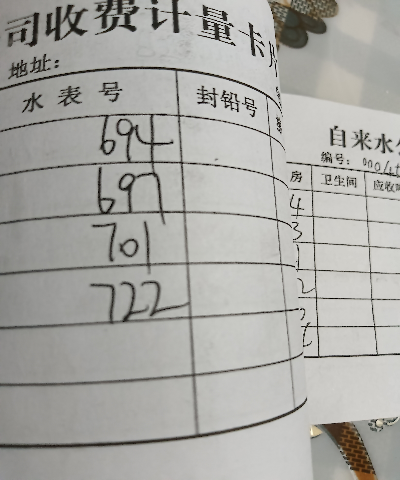 司收费计量卡片
地址：
水表号 封铅号
694
697
701
722
自来水公
编号： 000
房 卫生间 应收
4
3
1
2